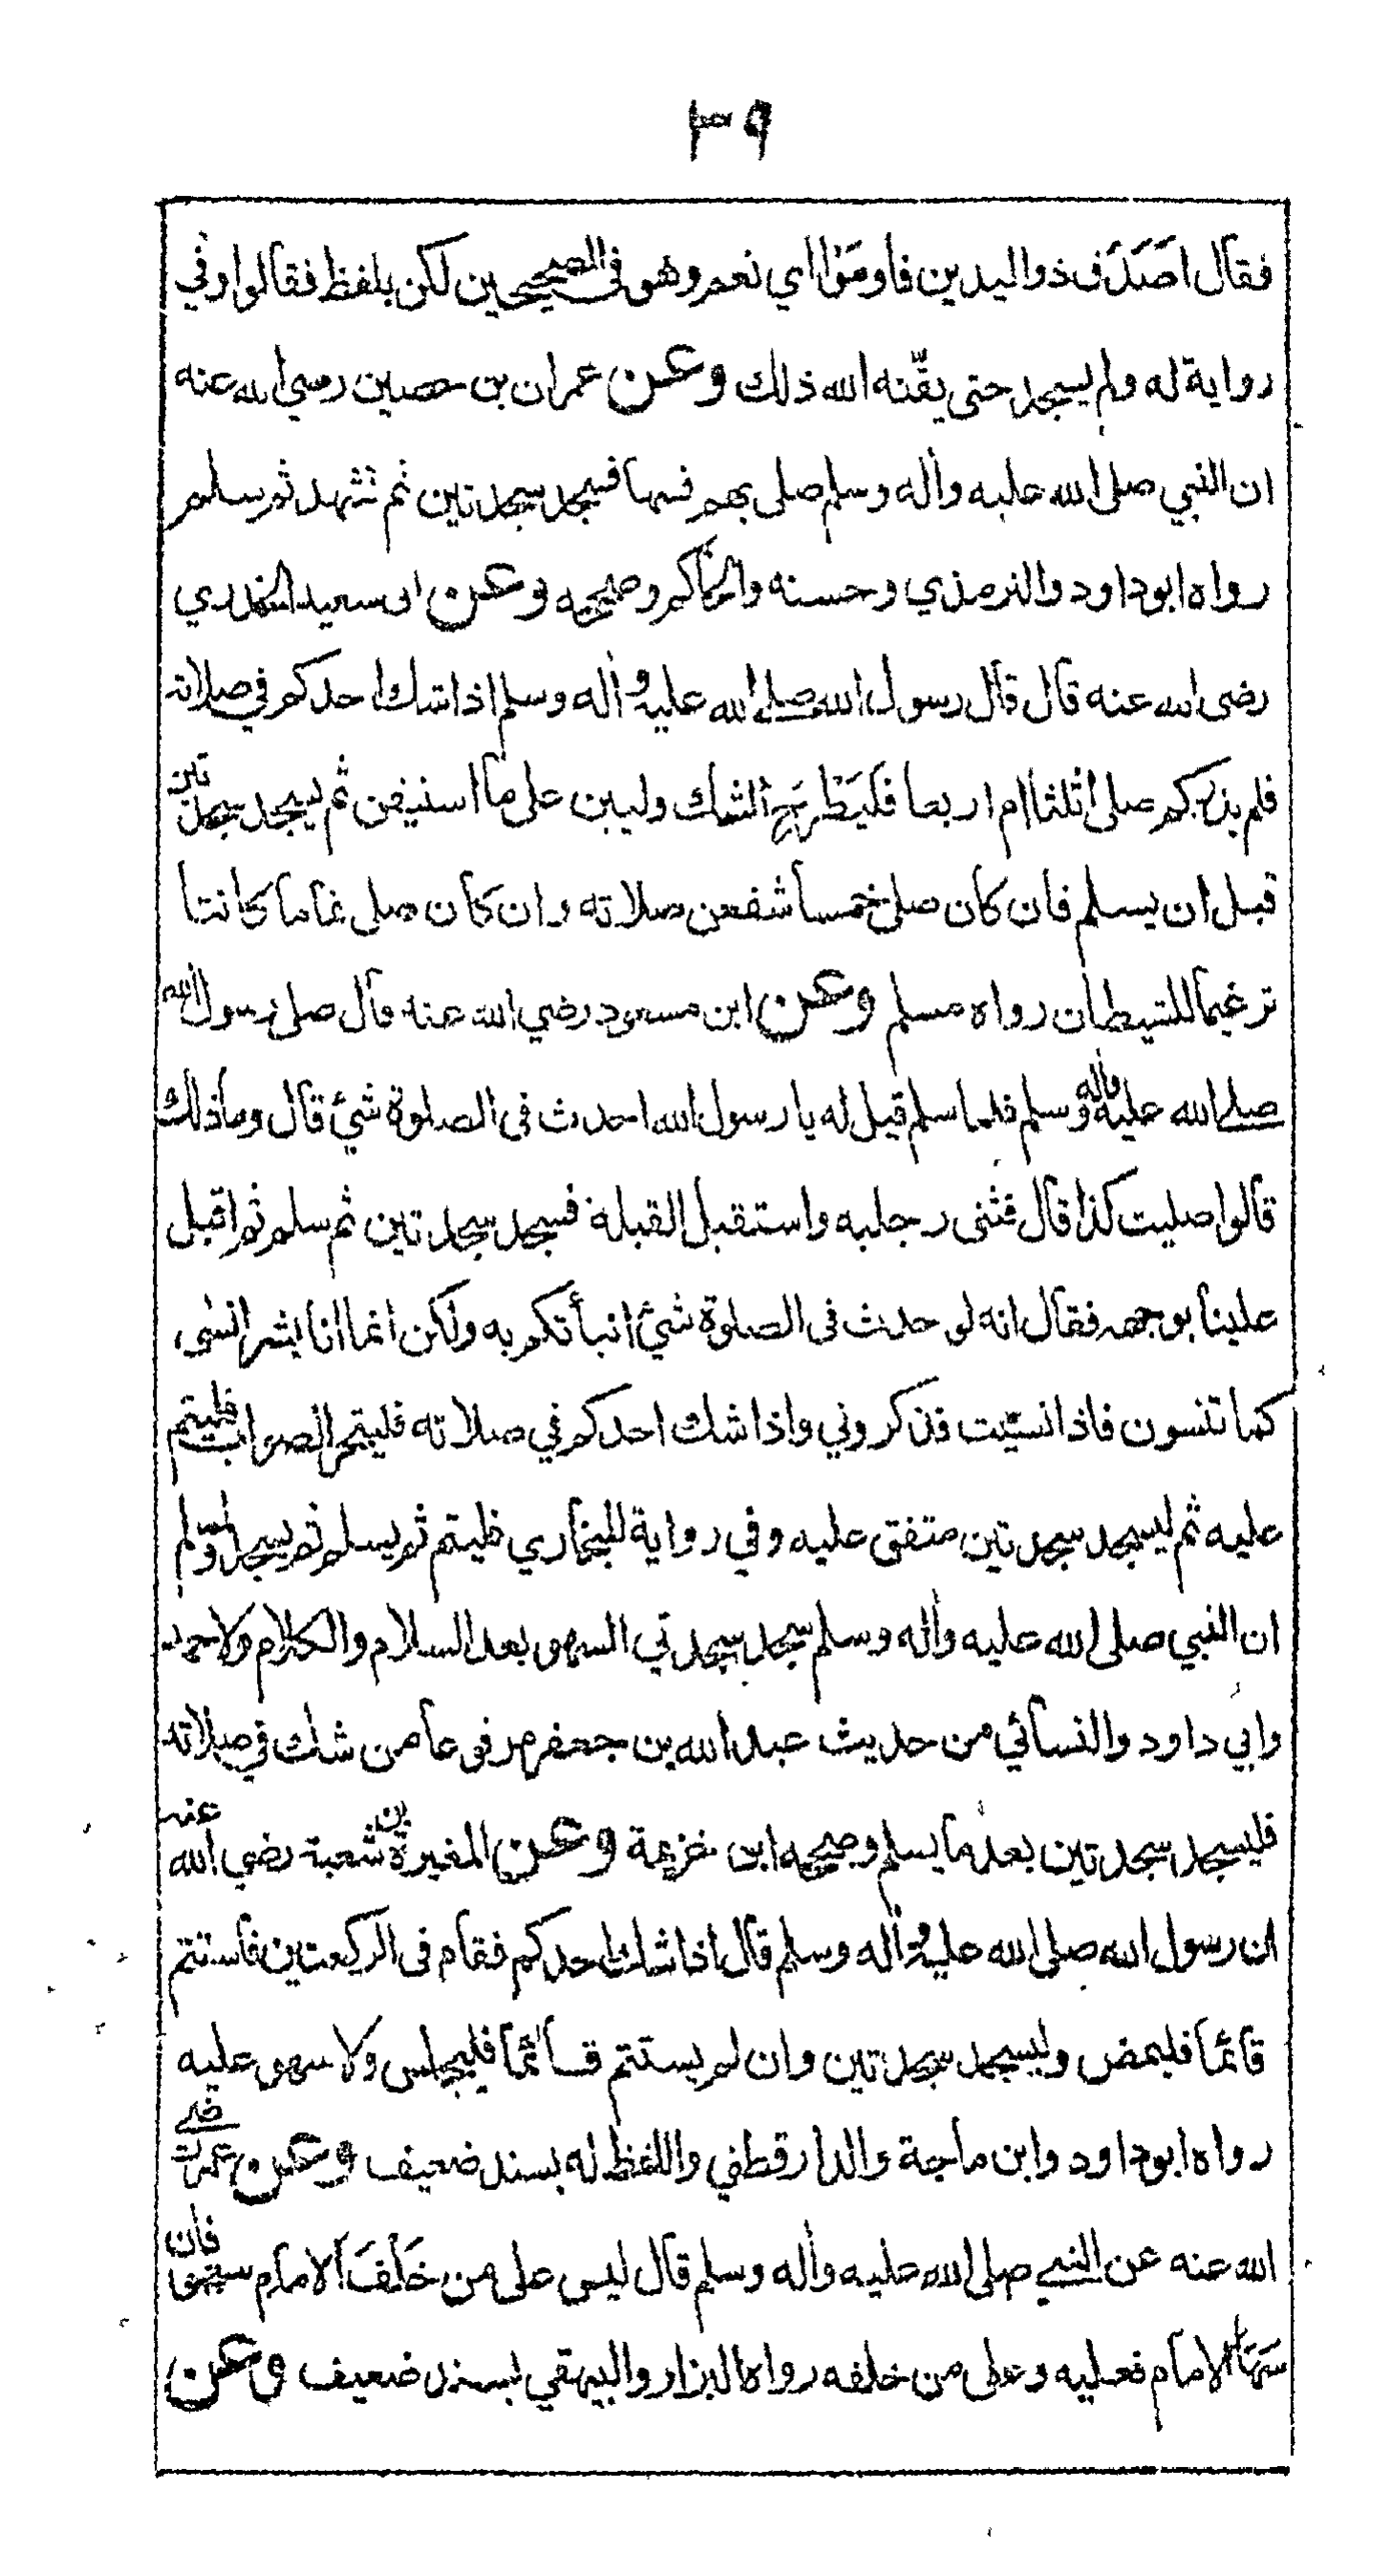 ٣٩
فقال اصَدَقَ ذو اليدين فاومَوْا اي نعم وهو في الصحيحين لكن بلفظ فقالوا وفي
رواية له ولم يسجد حتى يقّنه الله ذلك وعن عمران بن حصين رضي الله عنه
ان النبي صلى الله عليه واٰله وسلم صلى بهم فسها فسجد سجدتين ثم تشهد ثم سلم
رواه ابوداود والترمذي وحسنه والحاكم وصححه وعن ابى سعيد الخدري
رضى الله عنه قال قال رسول الله صلى الله عليه واٰله وسلم اذا شك احدكم في صلاته
فلم يدر كم صلى اثلثا ام اربعا فليَطْرَحِ الشك وليبن على ما استيقن ثم يسجد سجدتين
قبل ان يسلم فان كان صلى خمسا شفعن صلاته وان كان صلى تماما كانتا
ترغيما للشيطان رواه مسلم وعن ابن مسعود رضي الله عنه قال صلى رسول الله
صلى الله عليه واٰله وسلم فلما سلم قيل له يا رسول الله احدث فى الصلوة شيء قال وما ذلك
قالوا صليت كذا قال فثنى رجليه واستقبل القبلة فسجد سجدتين ثم سلم ثم اقبل
علينا بوجهه فقال انه لو حدث فى الصلوة شيء انبأتكم به ولكن انما انا بشر انسى
كما تنسون فاذا نسيت فذكروني واذا شك احدكم في صلاته فليتحر الصواب فليتم
عليه ثم ليسجد سجدتين متفق عليه وفي رواية للبخاري فليتم ثم يسلم ثم يسجد ولمسلم
ان النبي صلى الله عليه واٰله وسلم سجد سجدتي السهو بعد السلام والكلام ولاحمد
وابي داود والنسائي من حديث عبد الله بن جعفر مرفوعا من شك في صلاته
فليسجد سجدتين بعد ما يسلم وصححه ابن خزيمة وعن المغيرة بن شعبة رضي الله عنه
ان رسول الله صلى الله عليه واٰله وسلم قال اذا شك احدكم فقام فى الركعتين فاستتم
قائما فليمض وليسجد سجدتين وان لم يستتم قائما فليجلس ولا سهو عليه
رواه ابوداود وابن ماجة والدارقطني واللفظ له بسند ضعيف وعن عمر رضي
الله عنه عن النبي صلى الله عليه واٰله وسلم قال ليس على من خَلْفَ الامام سهو فان
سَهَا الامام فعليه وعلى من خلفه رواه البزار والبيهقي بسند ضعيف وعن